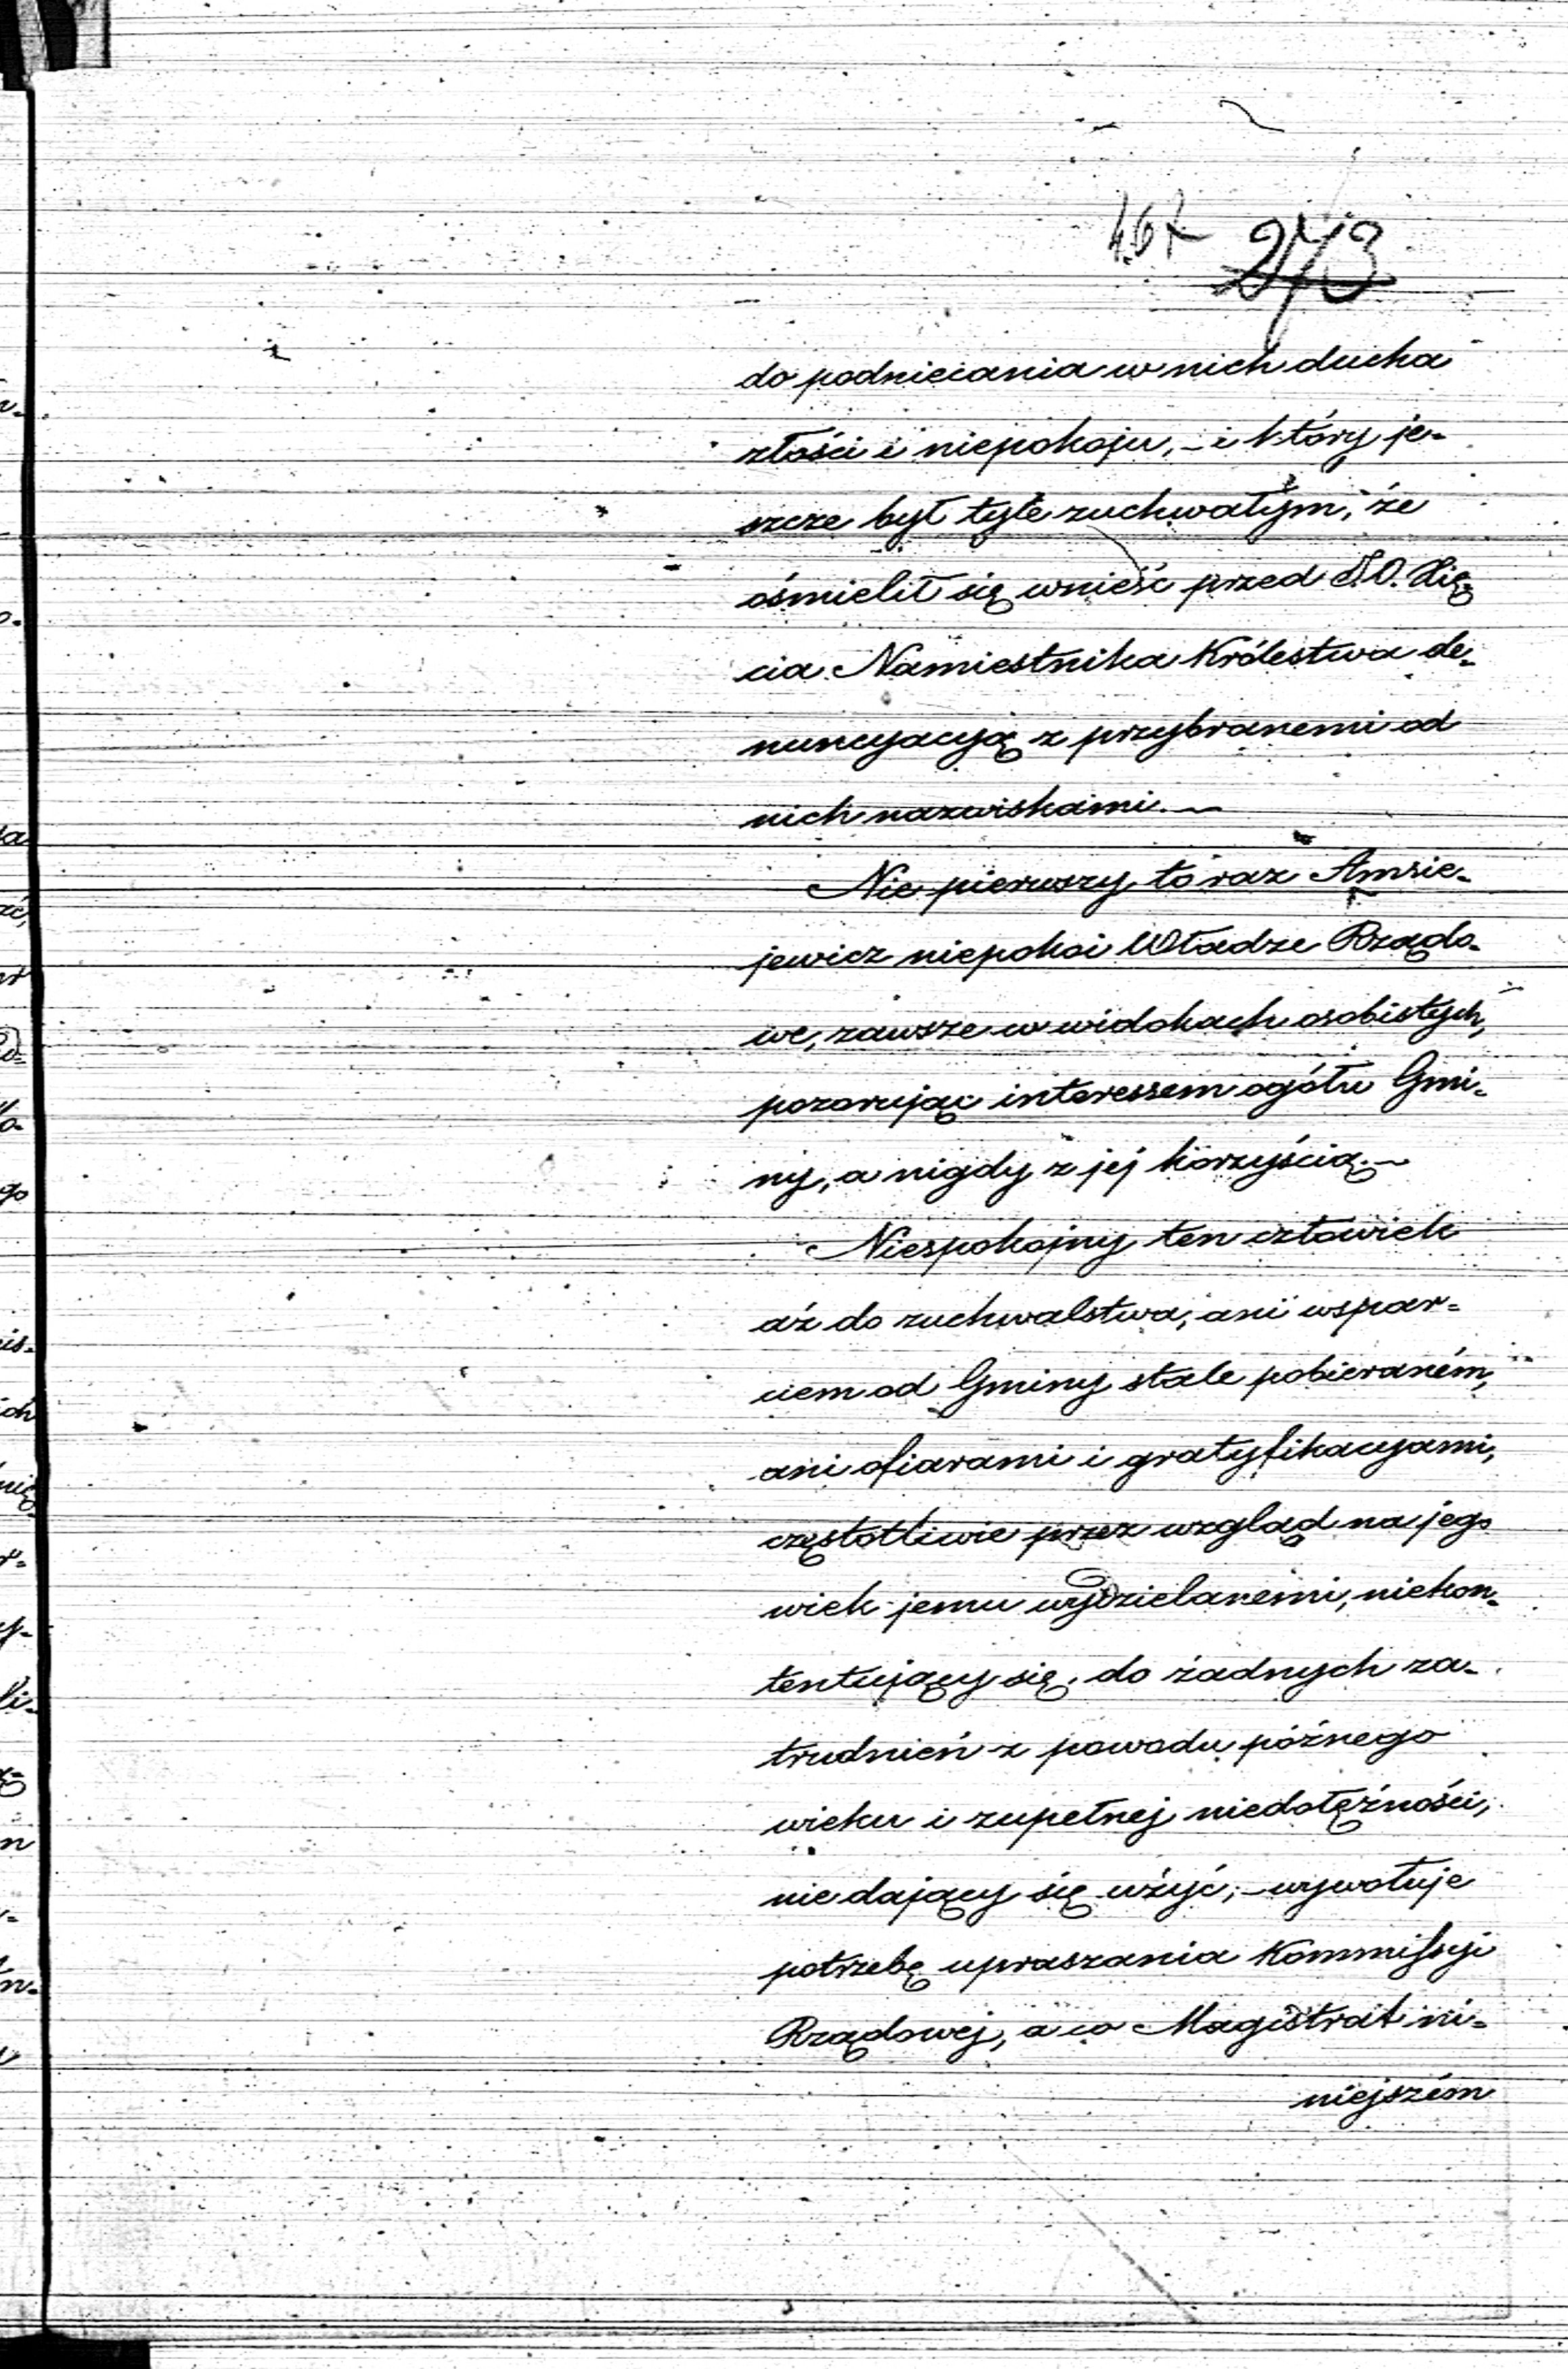 467 273
do podniecania w nich ducha
złości i niepokoju, – i który je-
szcze był tyle zuchwałym, że
ośmielił się wnieść przed J.O. Xię-
cia Namiestnika Królestwa de-
nuncyacyją z przybranemi od
nich nazwiskami. —
Nie pierwszy to raz Amzie-
jewicz niepokoi Władze Rządo-
we, zawsze w widokach osobistych,
pozorując interessem ogółu Gmi-
ny, a nigdy z jej korzyścią. —
Niespokojny ten człowiek
aż do zuchwalstwa, ani wspar-
ciem od Gminy stale pobieraném,
ani ofiarami i gratyfikacyjami,
częstotliwie przez wzgląd na jego
wiek jemu wydzielanemi, niekon-
tentujący się, do żadnych za-
trudnień z powodu późnego
wieku i zupełnej niedołężności,
nie dający się użyć; – wywołuje
potrzebę upraszania Kommissyi
Rządowej, a co Magistrat ni-
niejszém